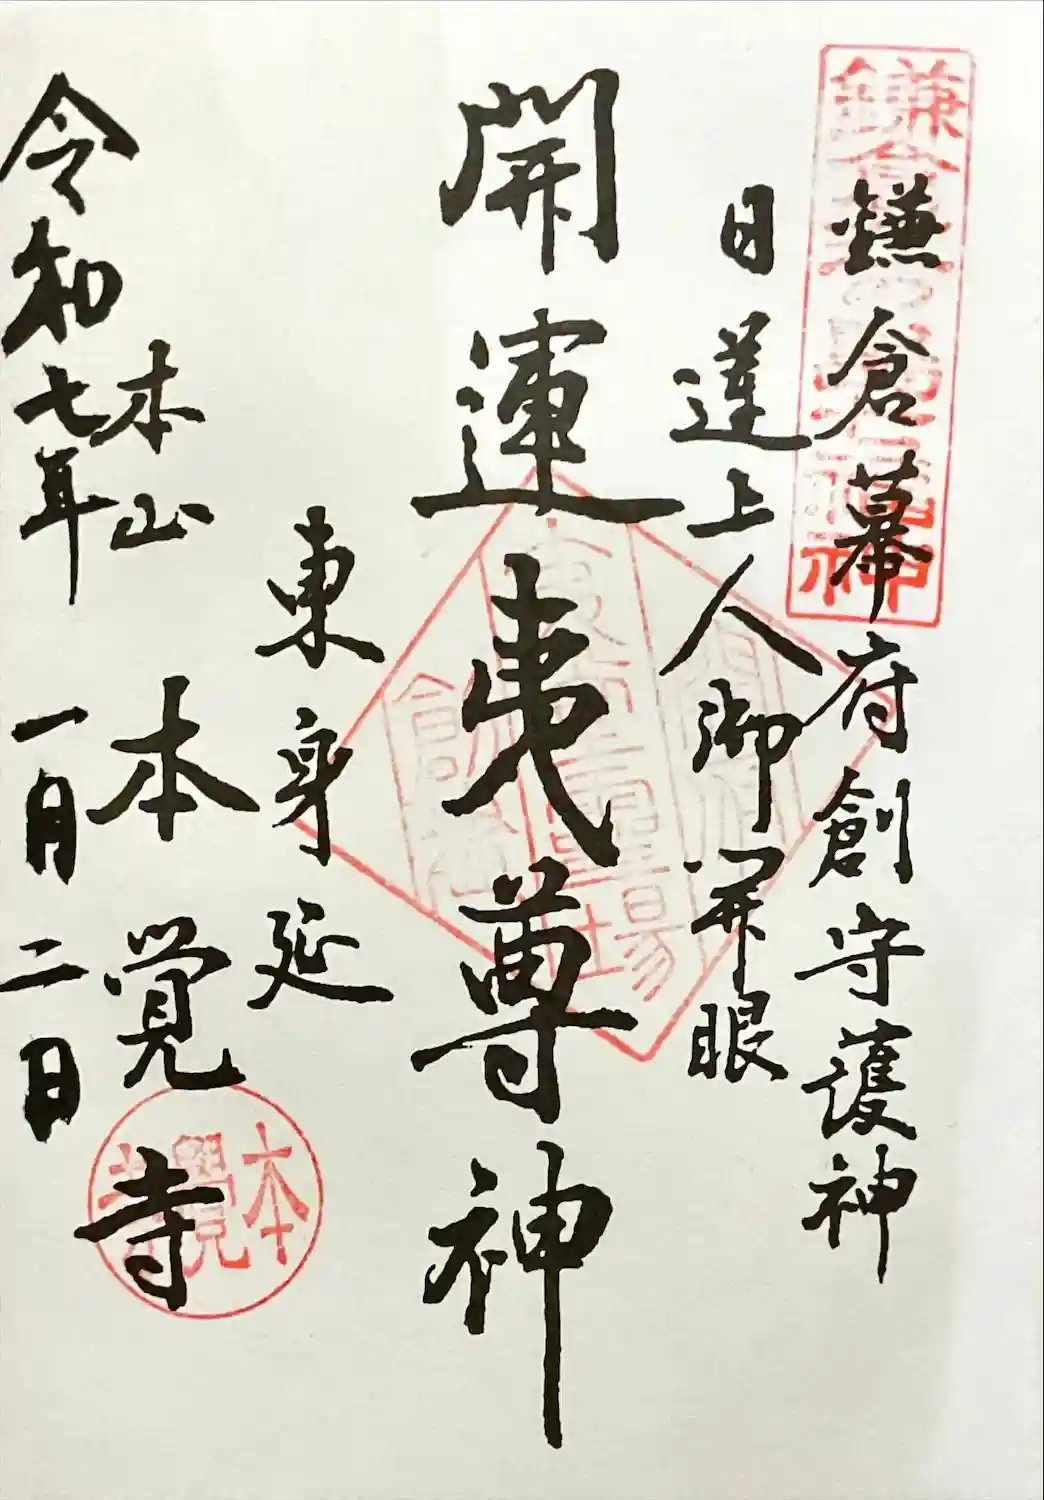 鎌倉幕府創守護神
日蓮上人御開眼
開運夷尊神
東身延
本山
本覚寺
令和七年一月二日
本覺寺